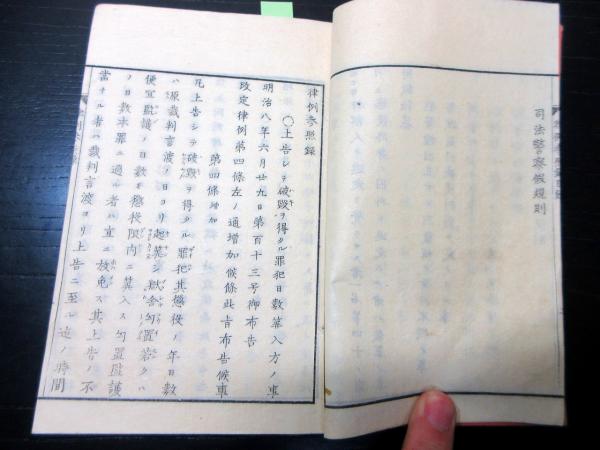 司法警察假規則
律例参照録
〇上告シテ破毀ヲ得タル罪犯日數算入方ノ事
明治八年六月廿九日第百十三号御布告
改定律例第四條左ノ通増加候條此旨布告候事
第四條増加
凡上告シテ破毀ヲ得タル罪犯其懲役ノ年日數
ハ原裁判言渡ノ日ヨリ起算シ獄舎勾置若クハ
便宜監護ノ日數モ懲役限内ニ算入ス勾置監護
ノ日數本罪ニ過ル者ハ直ニ放免ス其上告ノ不
當ナル者ハ裁判言渡ヨリ上告ニ至ル迄ノ時間